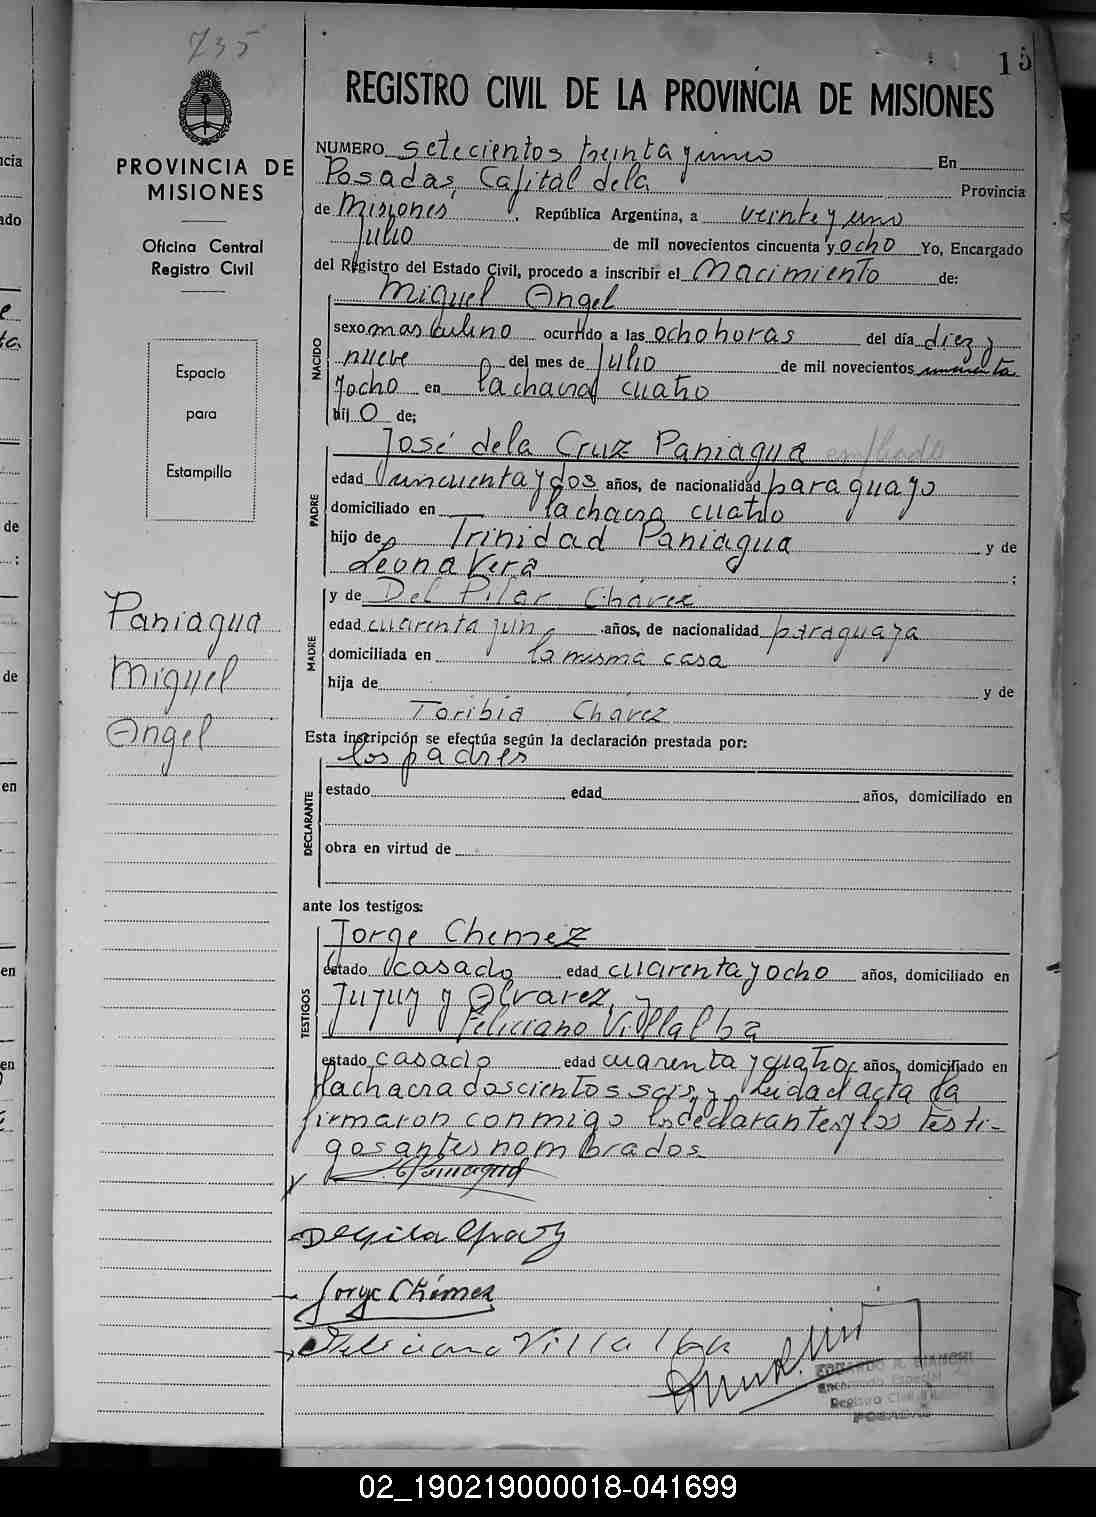 735
15
REGISTRO CIVIL DE LA PROVINCIA DE MISIONES
PROVINCIA DE
MISIONES
Oficina Central
Registro Civil
Espacio
para
Estampilla
Paniagua
Miguel
Angel
NUMERO setecientos treinta y cinco En
Posadas, Capital de la Provincia
de Misiones, República Argentina, a veinte y uno
Julio de mil novecientos cincuenta y ocho Yo, Encargado
del Registro del Estado Civil, procedo a inscribir el Nacimiento de:
NACIDO
Miguel Angel
sexo masculino ocurrido a las ocho horas del día diez y
nueve del mes de Julio de mil novecientos cincuenta
y ocho en la chacra cuatro
hij o de;
PADRE
José de la Cruz Paniagua empleado
edad cincuenta y dos años, de nacionalidad paraguayo
domiciliado en la chacra cuatro
hijo de Trinidad Paniagua y de
Leona Vera ;
MADRE
y de Del Pilar Chávez
edad cuarenta y un años, de nacionalidad paraguaya
domiciliada en la misma casa
hija de y de
Toribia Chávez
Esta inscripción se efectúa según la declaración prestada por:
los padres
DECLARANTE
estado edad años, domiciliado en
obra en virtud de
ante los testigos:
TESTIGOS
Jorge Chemez
estado casado edad cuarenta y ocho años, domiciliado en
Jujuy y Alvarez, y
Feliciano Villalba
estado casado edad cuarenta y cuatro años, domiciliado en
la chacra doscientos seis, y leida el acta la
firmaron conmigo los declarantes y los testi-
gos antes nombrados
Paniagua
Jorge Chémez
Feliciano Villalba
EDUARDO A. BIANCHI
Encargado Especial
Registro Civil
POSADAS
02_190219000018-041699